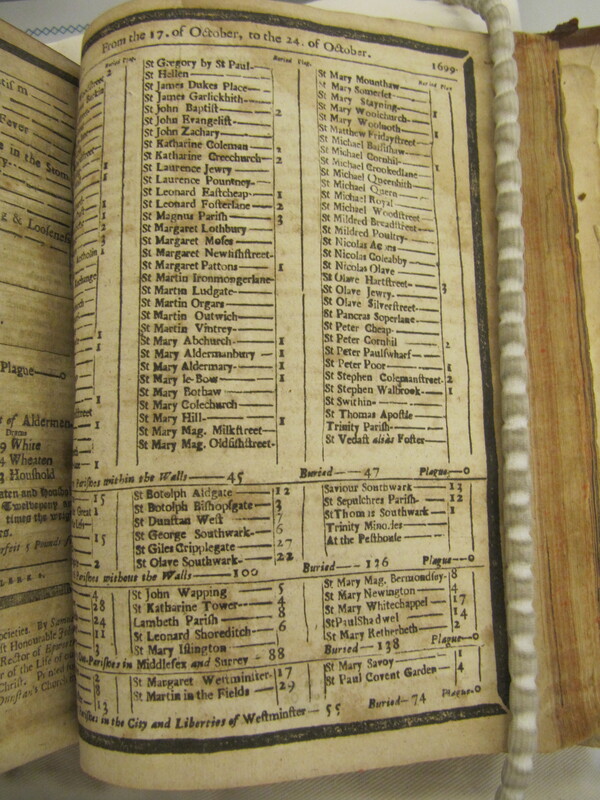 From the 17. of October, to the 24. of October. 1699.
Buried Plag.
St Gregory by St Paul
St Hellen
St James Dukes Place
St James Garlickhith
St John Baptist 2
St John Evangelist
St John Zachary
St Katharine Coleman 2
St Katharine Creechurch 2
St Laurence Jewry
St Laurence Pountney
St Leonard Eastcheap 1
St Leonard Fosterlane 2
St Magnus Parish 3
St Margaret Lothbury
St Margaret Moses
St Margaret Newfishstreet
St Margaret Pattons 1
St Martin Ironmongerlane
St Martin Ludgate
St Martin Orgars
St Martin Outwich
St Martin Vintrey
St Mary Abchurch 1
St Mary Aldermanbury 1
St Mary Aldermary 1
St Mary le-Bow 1
St Mary Bothaw
St Mary Colechurch
St Mary Hill 1
St Mary Mag. Milkstreet
St Mary Mag. Oldfishstreet
Buried Plag
St Mary Mounthaw
St Mary Somerset
St Mary Stayning
St Mary Woolchurch 1
St Mary Woolnoth
St Matthew Fridaystreet 1
St Michael Bassishaw
St Michael Cornhil
St Michael Crookedlane 1
St Michael Queenhith
St Michael Quern
St Michael Royal
St Michael Woodstreet
St Mildred Breadstreet
St Mildred Poultry
St Nicolas
St Nicolas Coleabby
St Nicolas Olave
St Olave Hartstreet 3
St Olave Jewry
St Olave Silverstreet
St Pancras Soperlane
St Peter Cheap
St Peter Cornhil 2
St Peter Paulswharf
St Peter Poor 1
St Stephen Colemanstreet 2
St Stephen Walbrook 1
St Swithin
St Thomas Apostle
Trinity Parish
St Vedast aliàs Foster
Parishes within the Walls 45 Buried 47 Plague 0
St Botolph Aldgate 12
St Botolph Bishopsgate 3
St Dunstan West 7
St George Southwark 6
St Giles Cripplegate 27
St Olave Southwark 22
Saviour Southwark 13
St Sepulchres Parish 12
St Thomas Southwark 1
Trinity Minories
At the Pesthouse
Parishes without the Walls 100 Buried 126 Plague 0
St John Wapping 5
St Katharine Tower 4
Lambeth Parish 8
St Leonard Shoreditch 6
St Mary Islington
St Mary Mag. Bermondsey 8
St Mary Newington 4
St Mary Whitechappel 17
St Paul Shadwel 14
St Mary Retherheth 2
Parishes in Middlesex and Surrey 88 Buried 138 Plague 0
St Margaret Westminster 17
St Martin in the Fields 29
St Mary Savoy 1
St Paul Covent Garden 4
Parishes in the City and Liberties of Westminster 55 Buried 74 Plague 0